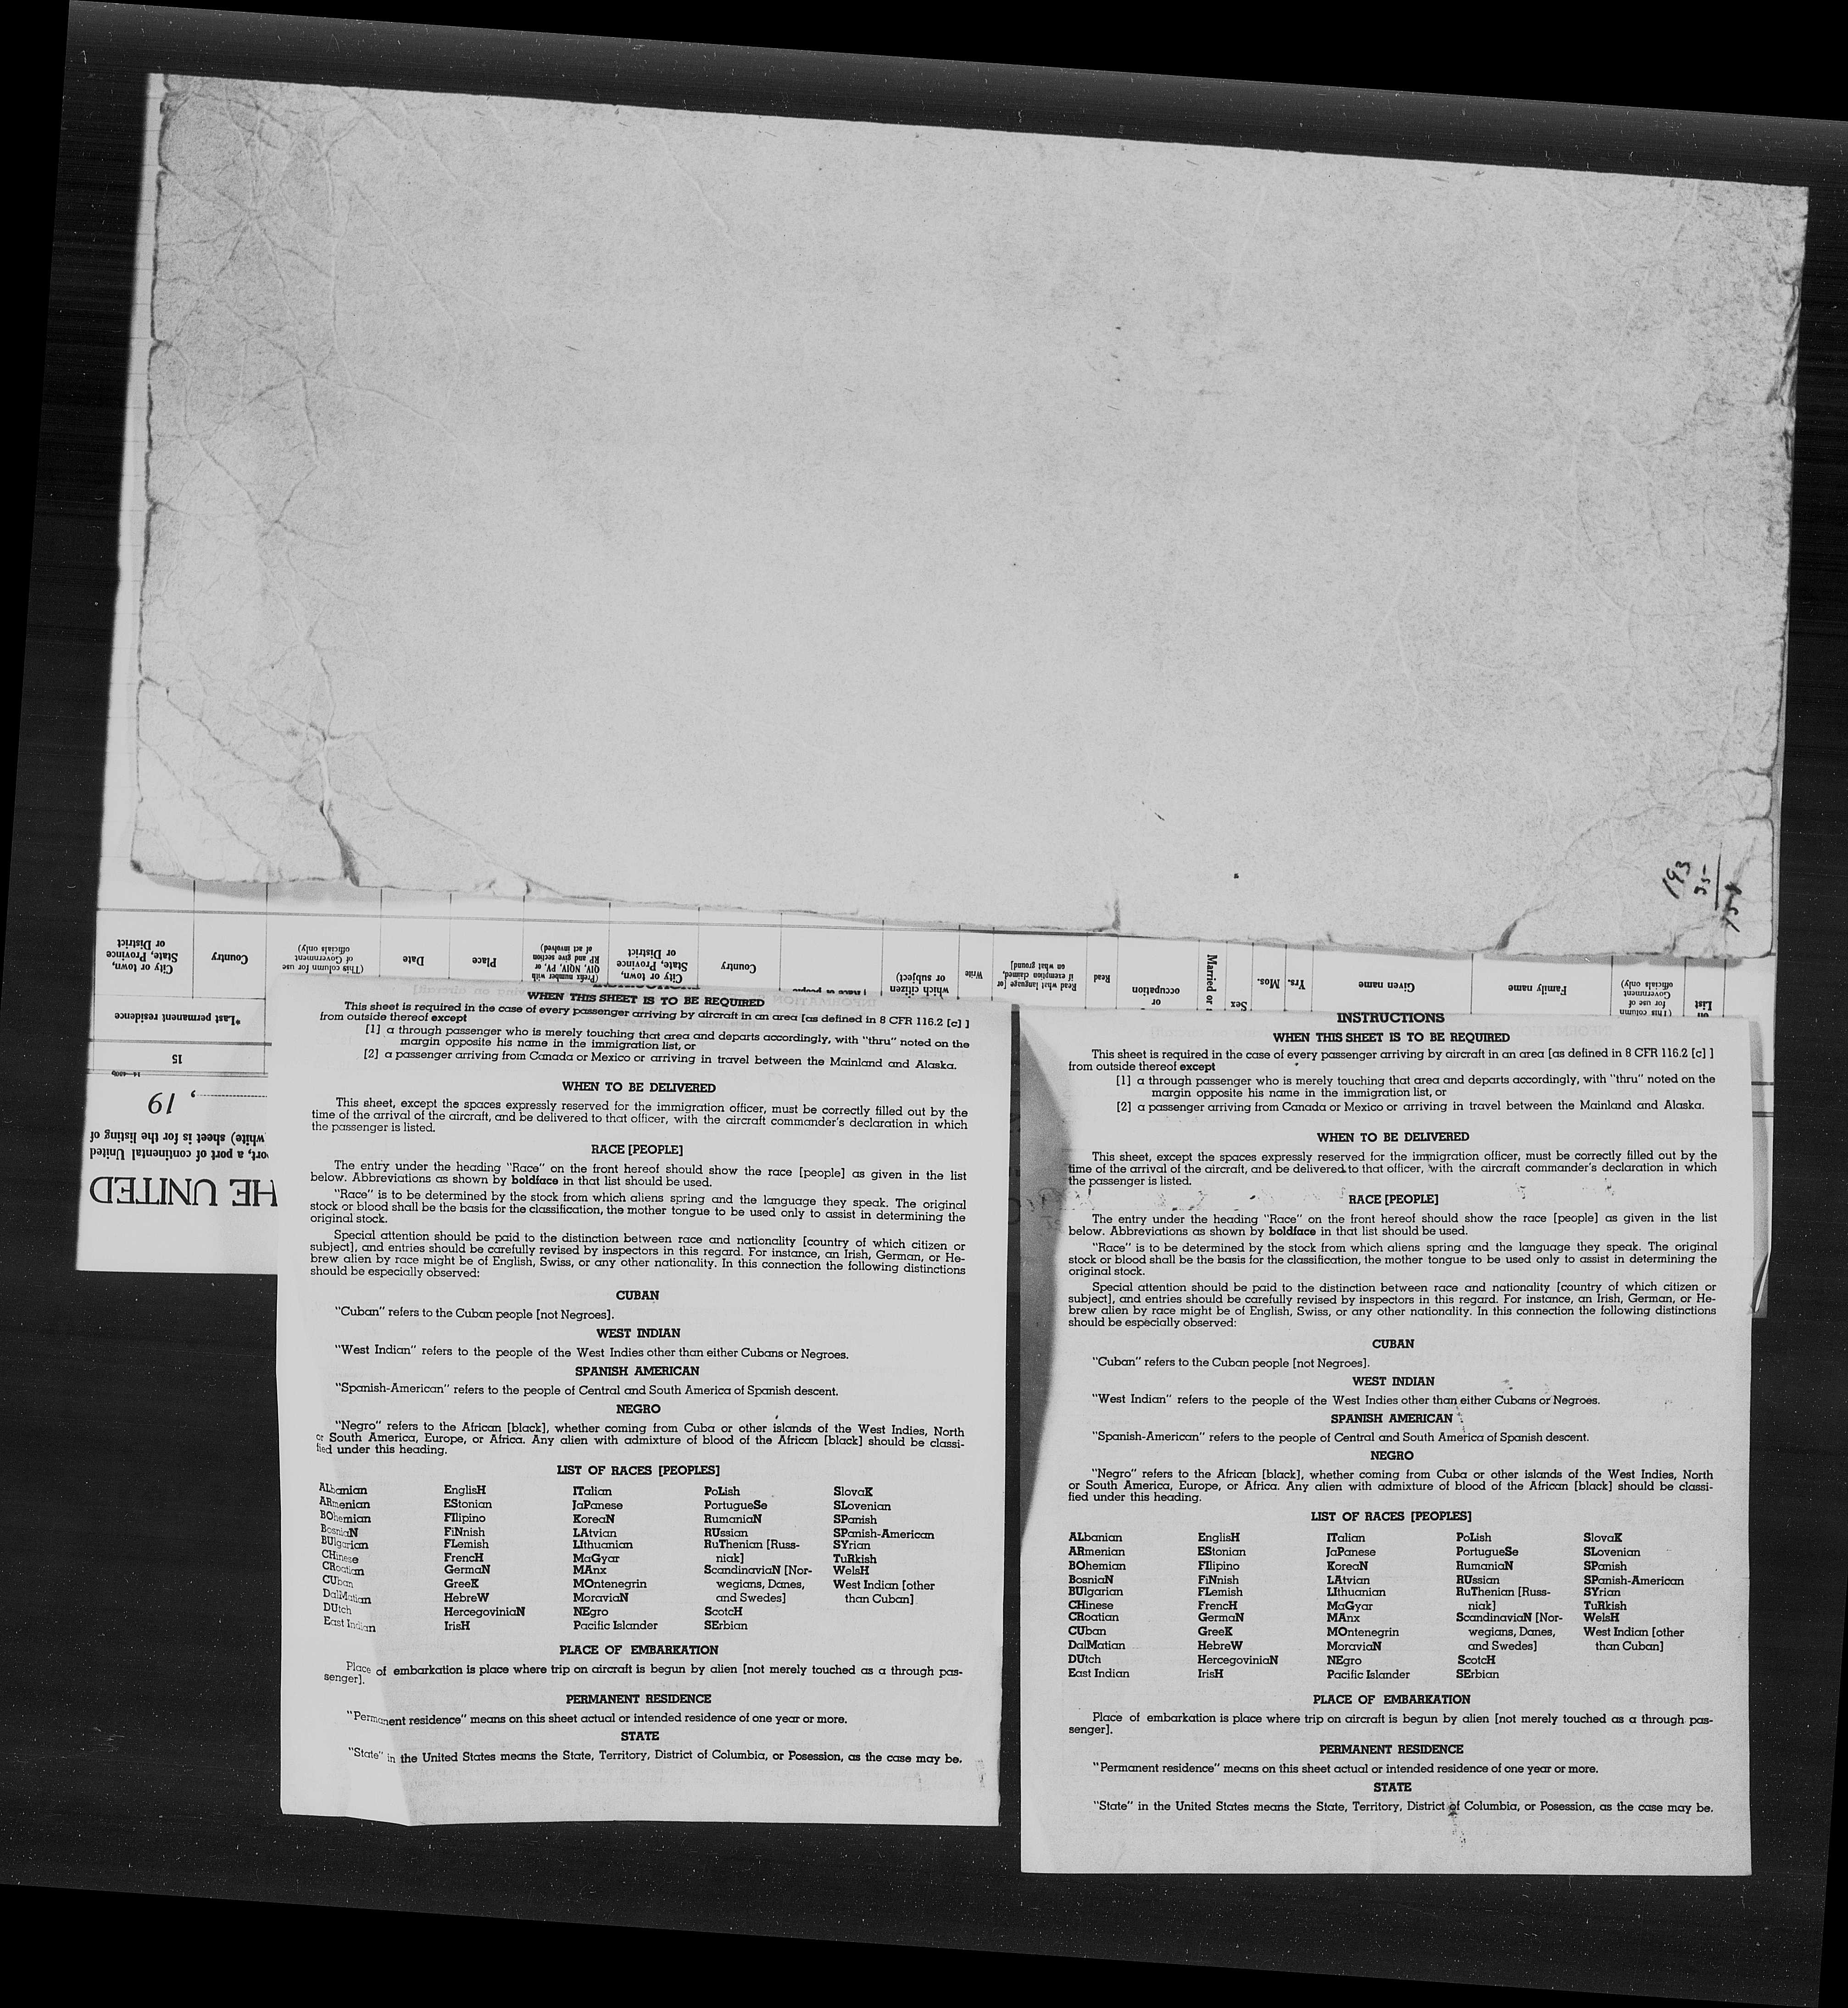 193
35
City or town,
State, Province
or District
Country
(This column for use
of Government
officials only)
Date
Place
(Prefix number with
QIV, NQIV, PV, or
RP and give section
of act involved)
City or town,
State, Province
or District
Country
which citizen
or subject)
Write
Read what language [or
if exemption claimed,
on what ground]
Read
or
occupation
Married or
Sex
Mos.
Yrs.
Given name
Family name
(This column
for use of
Government
officials only)
List
*Last permanent residence
15
, 19
white) sheet is for the listing of
ort, a port of continental United
HE UNITED
WHEN THIS SHEET IS TO BE REQUIRED
This sheet is required in the case of every passenger arriving by aircraft in an area [as defined in 8 CFR 116.2 [c] ]
from outside thereof except
[1] a through passenger who is merely touching that area and departs accordingly, with "thru" noted on the
margin opposite his name in the immigration list, or
[2] a passenger arriving from Canada or Mexico or arriving in travel between the Mainland and Alaska.
WHEN TO BE DELIVERED
This sheet, except the spaces expressly reserved for the immigration officer, must be correctly filled out by the
time of the arrival of the aircraft, and be delivered to that officer, with the aircraft commander's declaration in which
the passenger is listed.
RACE [PEOPLE]
The entry under the heading "Race" on the front hereof should show the race [people] as given in the list
below. Abbreviations as shown by boldface in that list should be used.
"Race" is to be determined by the stock from which aliens spring and the language they speak. The original
stock or blood shall be the basis for the classification, the mother tongue to be used only to assist in determining the
original stock.
Special attention should be paid to the distinction between race and nationality [country of which citizen or
subject], and entries should be carefully revised by inspectors in this regard. For instance, an Irish, German, or He-
brew alien by race might be of English, Swiss, or any other nationality. In this connection the following distinctions
should be especially observed:
CUBAN
"Cuban" refers to the Cuban people [not Negroes].
WEST INDIAN
"West Indian" refers to the people of the West Indies other than either Cubans or Negroes.
SPANISH AMERICAN
"Spanish-American" refers to the people of Central and South America of Spanish descent.
NEGRO
"Negro" refers to the African [black], whether coming from Cuba or other islands of the West Indies, North
or South America, Europe, or Africa. Any alien with admixture of blood of the African [black] should be classi-
fied under this heading.
LIST OF RACES [PEOPLES]
ALbanian EnglisH ITalian PoLish SlovaK
ARmenian EStonian JaPanese PortugueSe SLovenian
BOhemian FIlipino KoreaN RumaniaN SPanish
BosniaN FiNnish LAtvian RUssian SPanish-American
BUlgarian FLemish LIthuanian RuThenian [Russ- SYrian
CHinese FrencH MaGyar niak] TuRkish
CRoatian GermaN MAnx ScandinaviaN [Nor- WelsH
CUban GreeK MOntenegrin wegians, Danes, West Indian [other
DalMatian HebreW MoraviaN and Swedes] than Cuban]
DUtch HercegoviniaN NEgro ScotcH
East Indian IrisH Pacific Islander SErbian
PLACE OF EMBARKATION
Place of embarkation is place where trip on aircraft is begun by alien [not merely touched as a through pas-
senger].
PERMANENT RESIDENCE
"Permanent residence" means on this sheet actual or intended residence of one year or more.
STATE
"State" in the United States means the State, Territory, District of Columbia, or Posession, as the case may be.
INSTRUCTIONS
WHEN THIS SHEET IS TO BE REQUIRED
This sheet is required in the case of every passenger arriving by aircraft in an area [as defined in 8 CFR 116.2 [c] ]
from outside thereof except
[1] a through passenger who is merely touching that area and departs accordingly, with "thru" noted on the
margin opposite his name in the immigration list, or
[2] a passenger arriving from Canada or Mexico or arriving in travel between the Mainland and Alaska.
WHEN TO BE DELIVERED
This sheet, except the spaces expressly reserved for the immigration officer, must be correctly filled out by the
time of the arrival of the aircraft, and be delivered to that officer, with the aircraft commander's declaration in which
the passenger is listed.
RACE [PEOPLE]
The entry under the heading "Race" on the front hereof should show the race [people] as given in the list
below. Abbreviations as shown by boldface in that list should be used.
"Race" is to be determined by the stock from which aliens spring and the language they speak. The original
stock or blood shall be the basis for the classification, the mother tongue to be used only to assist in determining the
original stock.
Special attention should be paid to the distinction between race and nationality [country of which citizen or
subject], and entries should be carefully revised by inspectors in this regard. For instance, an Irish, German, or He-
brew alien by race might be of English, Swiss, or any other nationality. In this connection the following distinctions
should be especially observed:
CUBAN
"Cuban" refers to the Cuban people [not Negroes].
WEST INDIAN
"West Indian" refers to the people of the West Indies other than either Cubans or Negroes.
SPANISH AMERICAN
"Spanish-American" refers to the people of Central and South America of Spanish descent.
NEGRO
"Negro" refers to the African [black], whether coming from Cuba or other islands of the West Indies, North
or South America, Europe, or Africa. Any alien with admixture of blood of the African [black] should be classi-
fied under this heading.
LIST OF RACES [PEOPLES]
ALbanian EnglisH ITalian PoLish SlovaK
ARmenian EStonian JaPanese PortugueSe SLovenian
BOhemian FIlipino KoreaN RumaniaN SPanish
BosniaN FiNnish LAtvian RUssian SPanish-American
BUlgarian FLemish LIthuanian RuThenian [Russ- SYrian
CHinese FrencH MaGyar niak] TuRkish
CRoatian GermaN MAnx ScandinaviaN [Nor- WelsH
CUban GreeK MOntenegrin wegians, Danes, West Indian [other
DalMatian HebreW MoraviaN and Swedes] than Cuban]
DUtch HercegoviniaN NEgro ScotcH
East Indian IrisH Pacific Islander SErbian
PLACE OF EMBARKATION
Place of embarkation is place where trip on aircraft is begun by alien [not merely touched as a through pas-
senger].
PERMANENT RESIDENCE
"Permanent residence" means on this sheet actual or intended residence of one year or more.
STATE
"State" in the United States means the State, Territory, District of Columbia, or Posession, as the case may be.